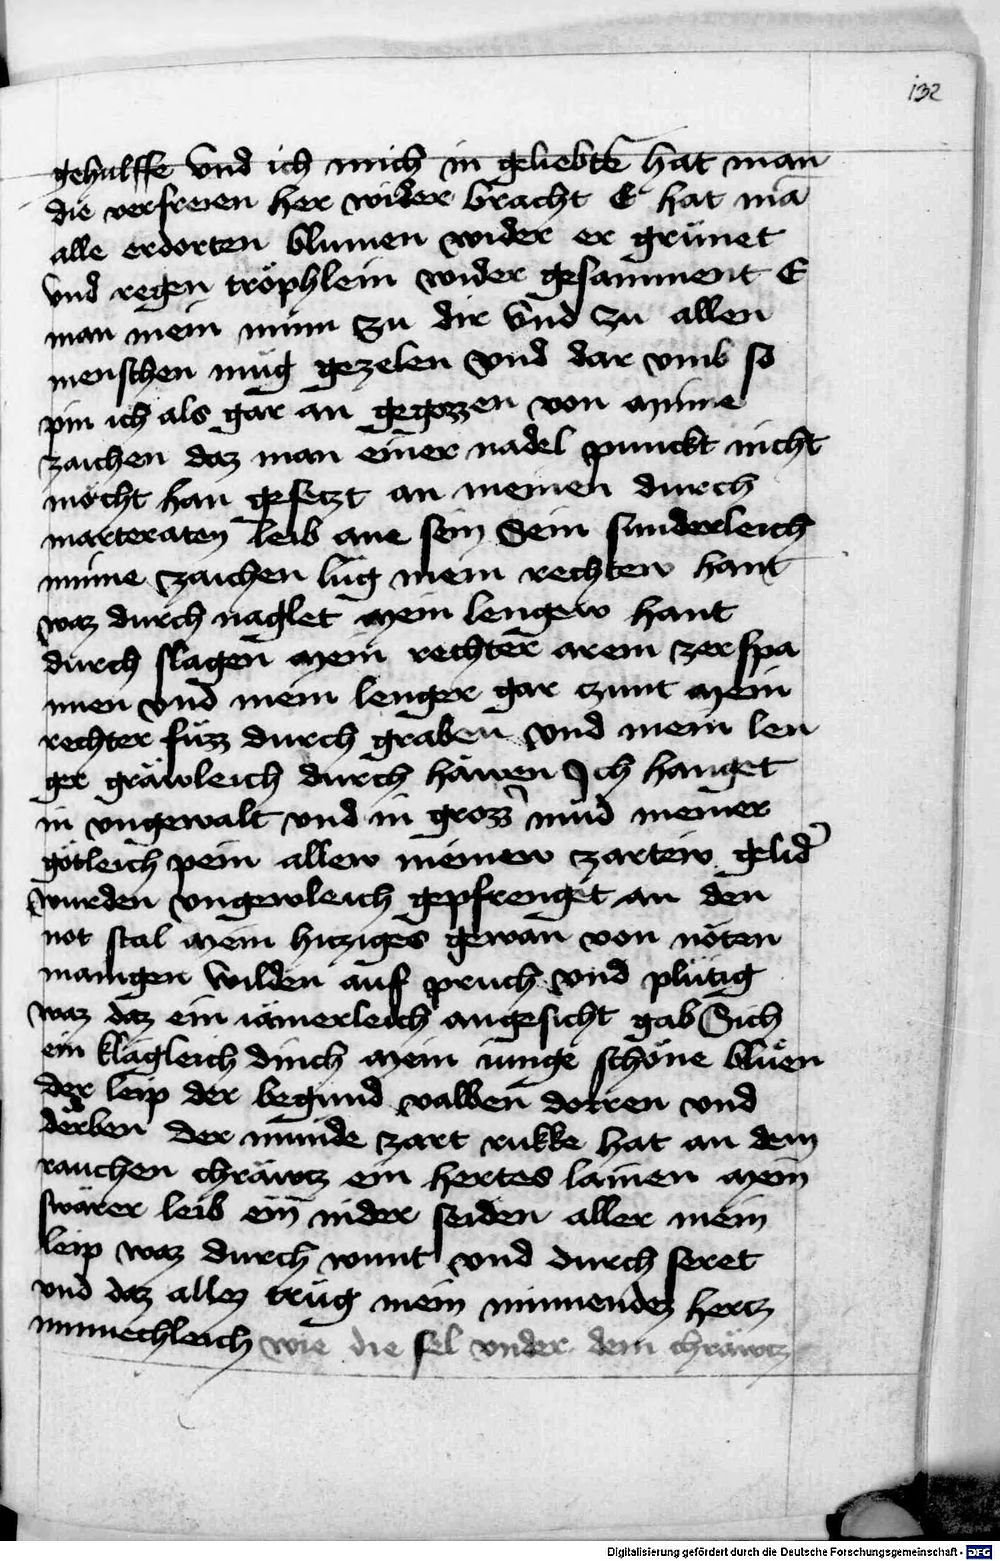 132
gehulffe vnd ich mich in geliebtt hat man
die verfreien her wider bracht E hat mā
alle erdorten blumen wider er grünet
vnd regen tröphlein wider gesamment E
man mein minn zu dir vnd zu allen
menschen müg gezelen vnd dar vmb so
pin ich als gar an gegozzen von minne
zaichen daz man einer nadel punckt nicht
möcht han gesetzt an meinen durch
marteraten leib ane sein Sein sunderleich
minne zaichen lüg mein rechtew hant
waz durch naglet mein lengew hant
durch slagen mein rechter arem zerspa
nnen vnd mein lenger gar czunt mein
rechter füzz durch graben vnd mein len
ger gräwleich durch häwen Ich hanget
in vngewalt vnd in grozz müd meiner
götleich pein allew meinew zartew gelid
wurden vngewleich gepfrenget an den
not stal mein hicziges gewan von nöten
manigen wilden auf pruch vnd plütig
waz daz ein iämerleich angesicht gab Sich
ein klägleich dinch mein iunge schöne blüen
der leip der begund valben dorren vnd
derben der münde zart rukke hat an dem
rauchen chräwcz ein hertes lainen mein
swärer leib ein nider seiden aller mein
leip waz durch wunt vnd durch seret
vnd daz allez trüg mein minnendez hercz
minnechleich wie die sel vnder dem chräwcz
Digitalisierung gefördert durch die Deutsche Forschungsgemeinschaft - DFG